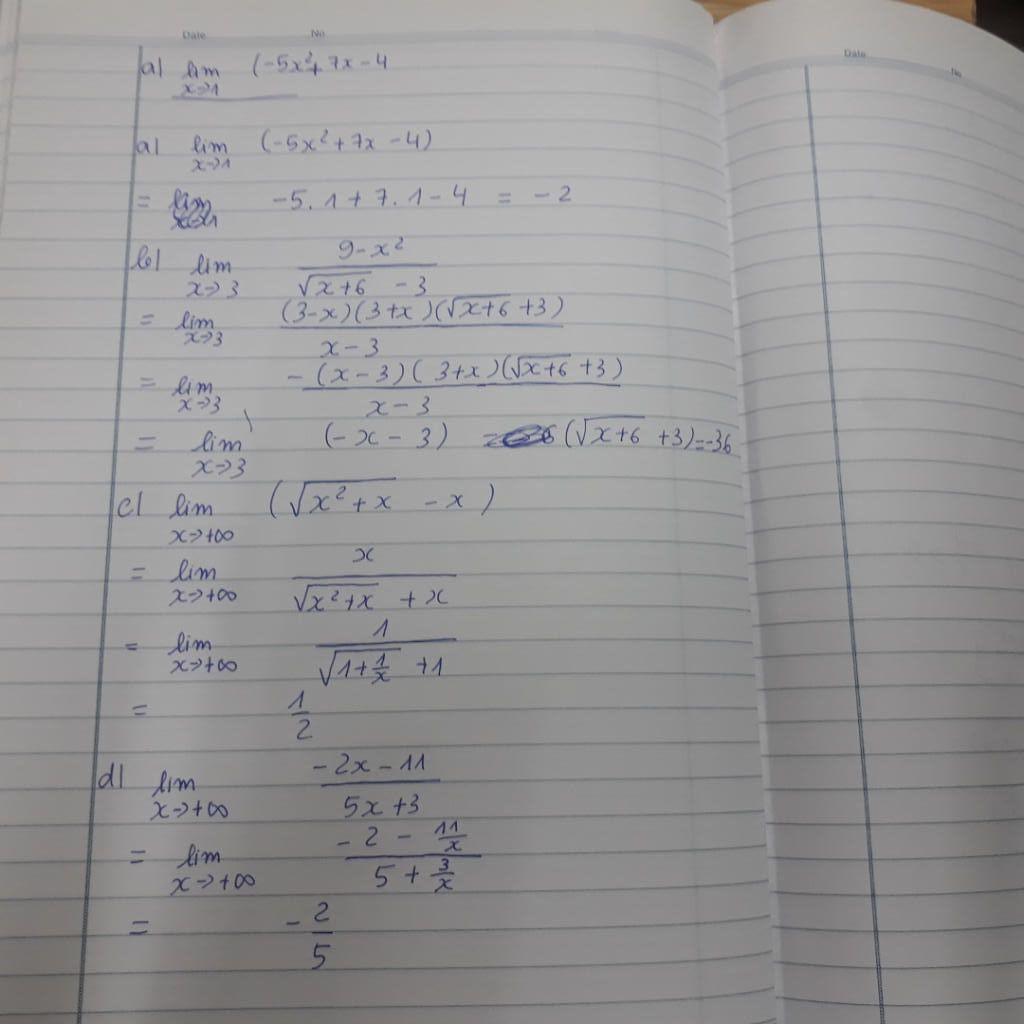 Date No
Date No
a) lim x→1 (-5x²+7x-4
a) lim x→1 (-5x²+7x-4)
= -5.1+7.1-4 = -2
b) lim x→3 (9-x²)/(√(x+6) -3)
= lim x→3 ((3-x)(3+x)(√(x+6)+3))/(x-3)
= lim x→3 (-(x-3)(3+x)(√(x+6)+3))/(x-3)
= lim x→3 (-x-3) (√(x+6)+3)=-36
c) lim x→+∞ (√(x²+x) -x)
= lim x→+∞ x/(√(x²+x) +x)
= lim x→+∞ 1/(√(1+1/x) +1)
= 1/2
d) lim x→+∞ (-2x-11)/(5x+3)
= lim x→+∞ (-2-11/x)/(5+3/x)
= -2/5